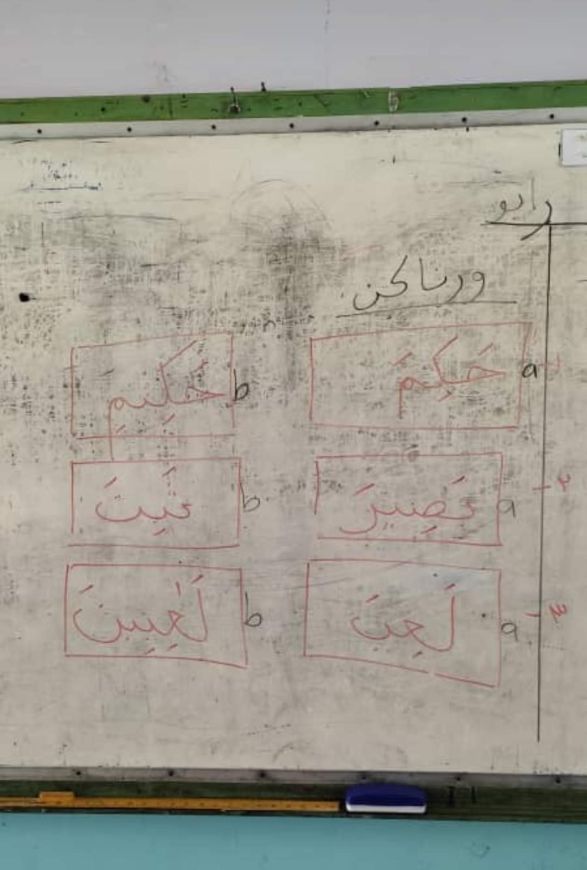 رابو
ورناكن
١- a حَكِمَ b حَكِيمِ
٢- a بَصِيرَ b
٣- a لَعِبَ b